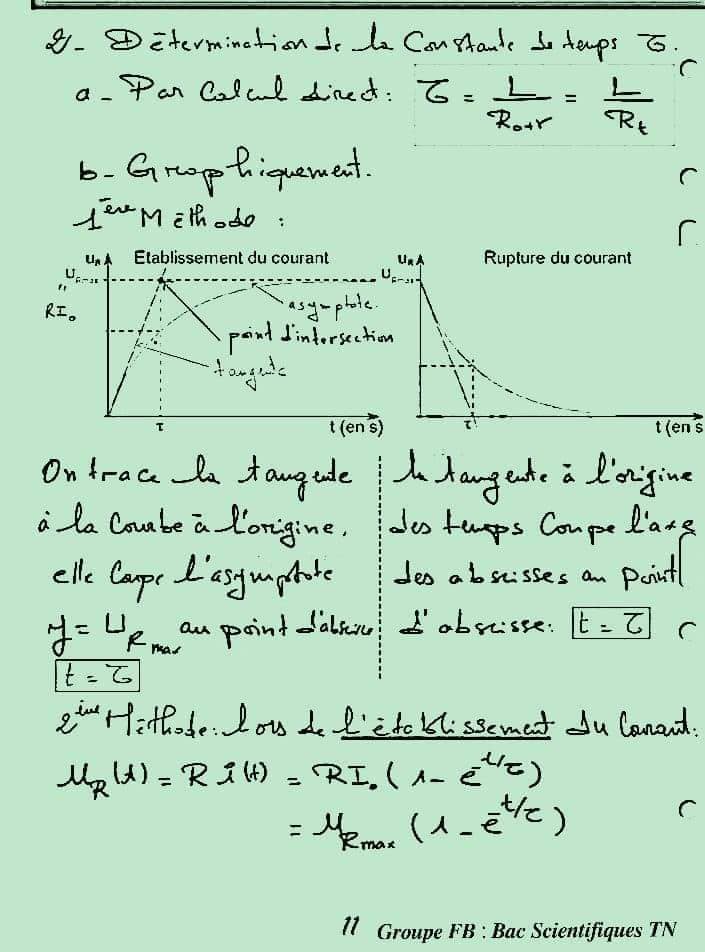 2/- Détermination de la Constante de temps τ.
a - Par Calcul direct : τ = L/(R₀+r) = L/Rt
b - Graphiquement.
1ère Méthode :
uR Etablissement du courant
uR Rupture du courant
"
RI₀
asymptote
point d'intersection
tangente
τ t (en s)
τ t (en s
On trace la tangente
à la Courbe à l'origine,
elle Coupe l'asymptote
y = U_Rmax au point d'abscisse
t = τ
la tangente à l'origine
des temps Coupe l'axe
des abscisses au point
d'abscisse: t = τ
2ème Méthode: lors de l'établissement du Courant:
u_R(t) = R i(t) = RI₀ (1 - e^-t/τ)
= u_Rmax (1 - e^-t/τ)
11 Groupe FB : Bac Scientifiques TN